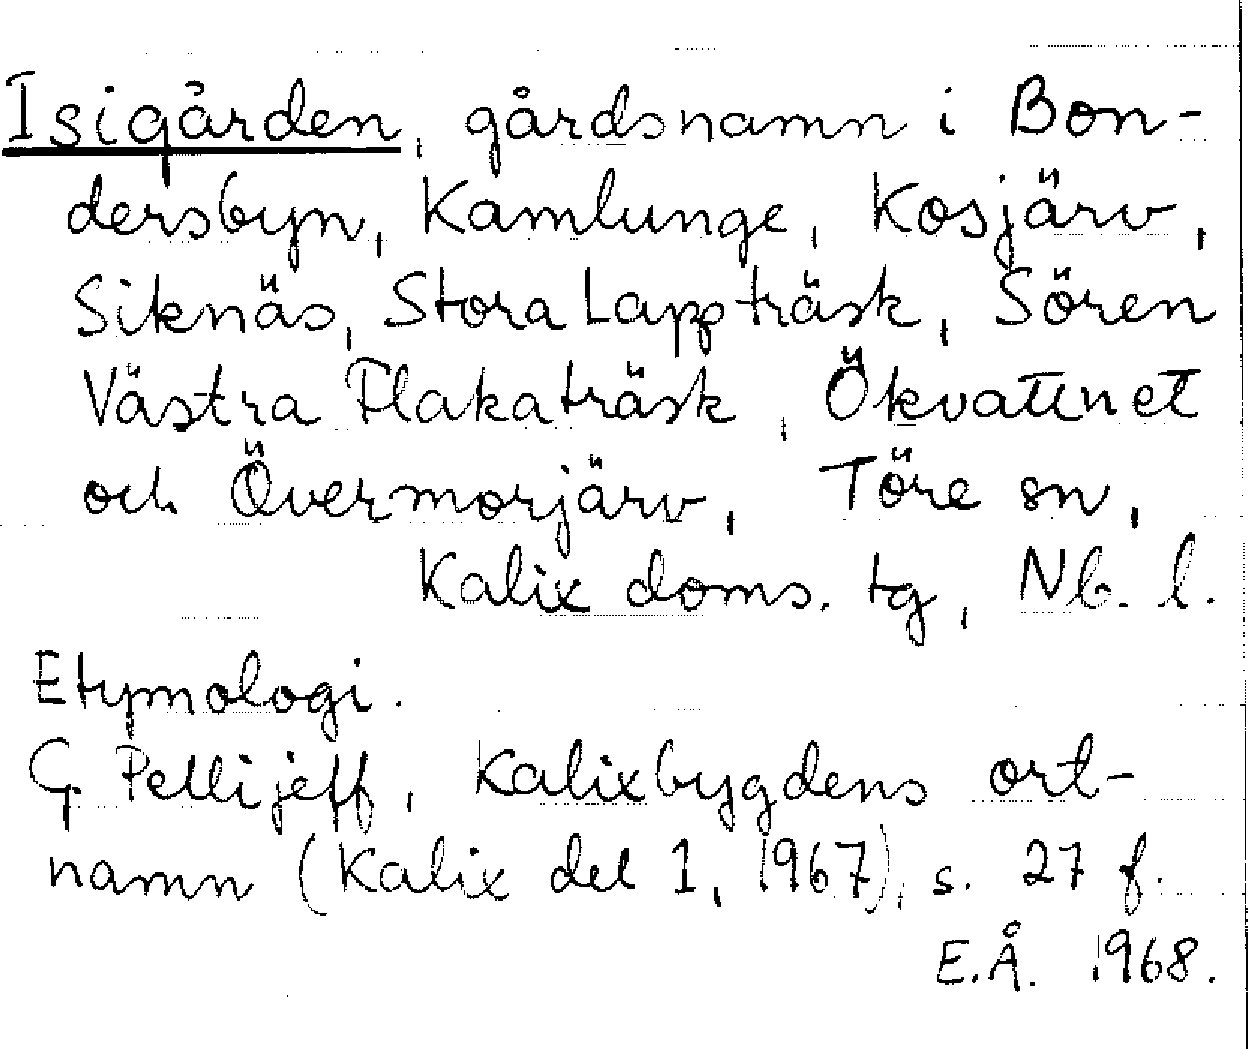 Isigården, gårdsnamn i Bon-
dersbyn, Kamlunge, Kosjärv,
Siknäs, Stora Lappträsk, Sören
Västra Flakaträsk, Ökvattnet
och Övermorjärv, Töre sn,
Kalix doms. tg, Nb. l.
Etymologi.
G. Pellijeff, Kalixbygdens ort-
namn (Kalix del 1, 1967), s. 27 f.
E.Å. 1968.